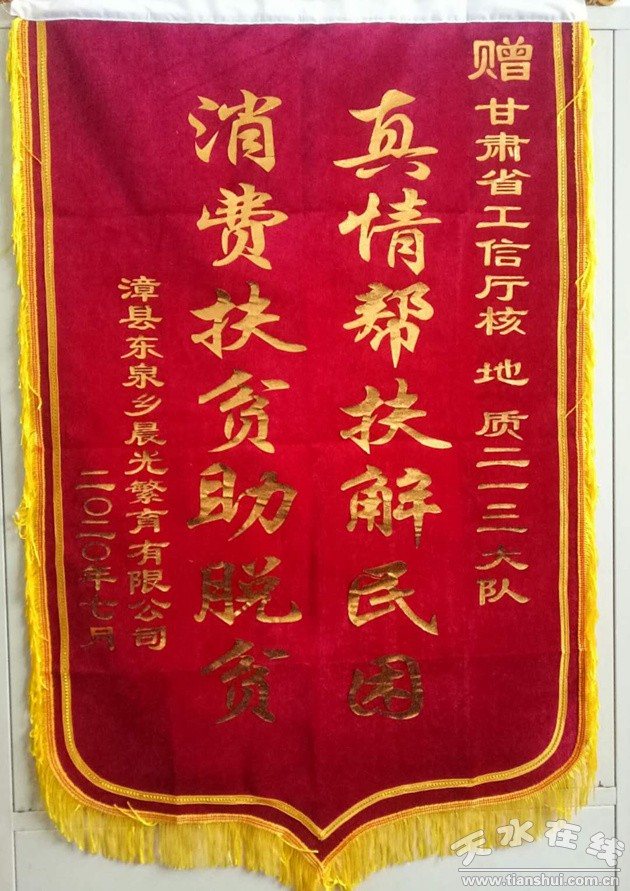 赠甘肃省工信厅核地质二一三大队
真情帮扶解民困
消费扶贫助脱贫
漳县东泉乡晨光繁育有限公司
二〇二〇年七月
天水在线
www.tianshui.com.cn